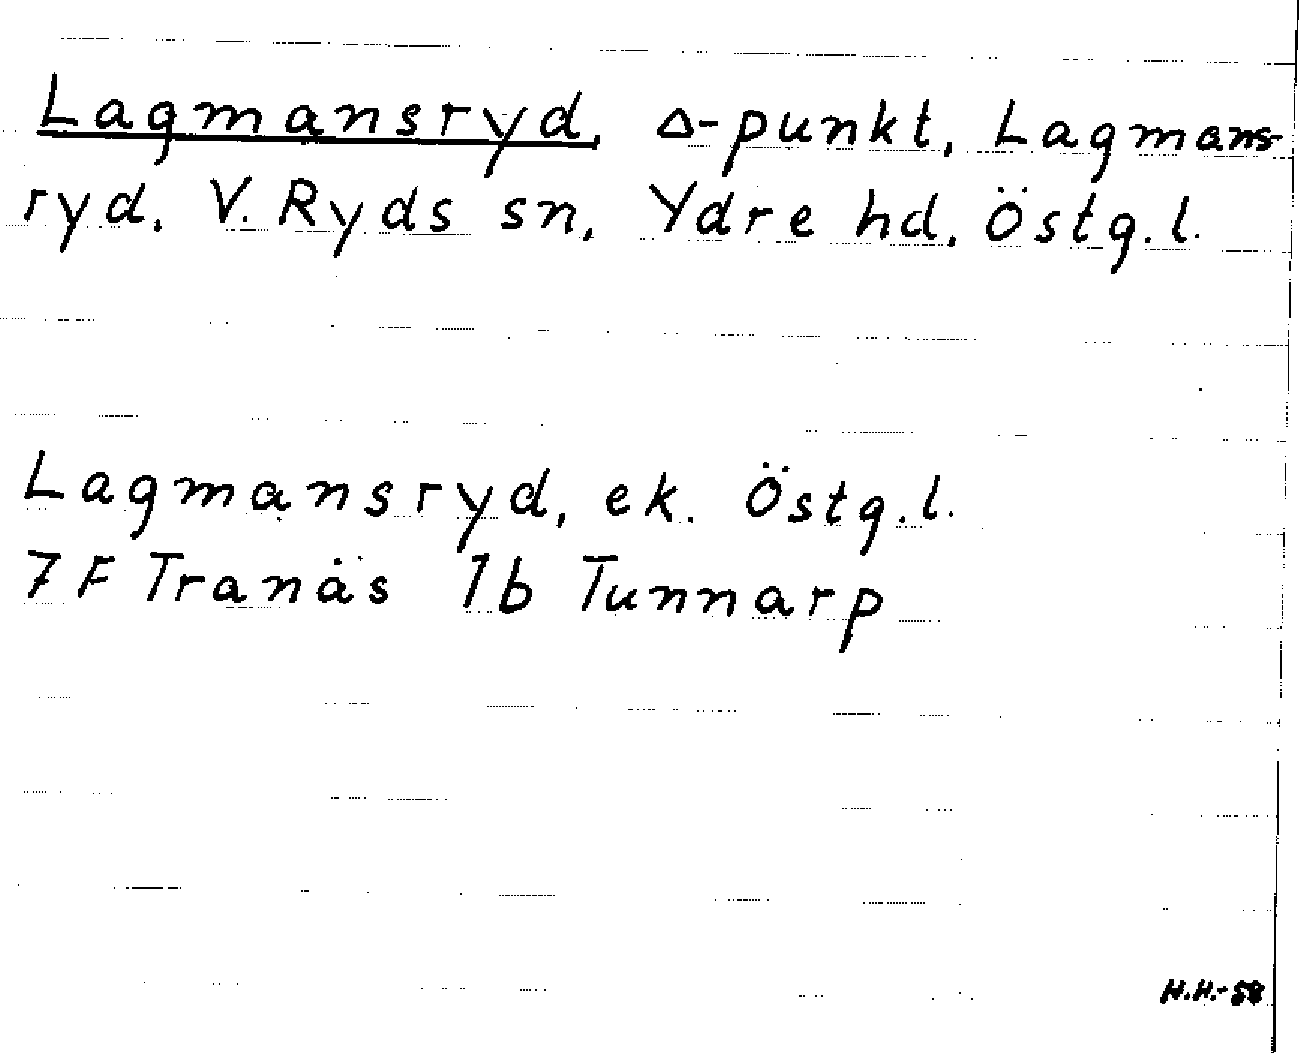 Lagmansryd, Δ-punkt, Lagmans-
ryd, V. Ryds sn, Ydre hd, Östg.l.
Lagmansryd, ek. Östg.l.
7 F Tranås 1b Tunnarp
H.H.-58